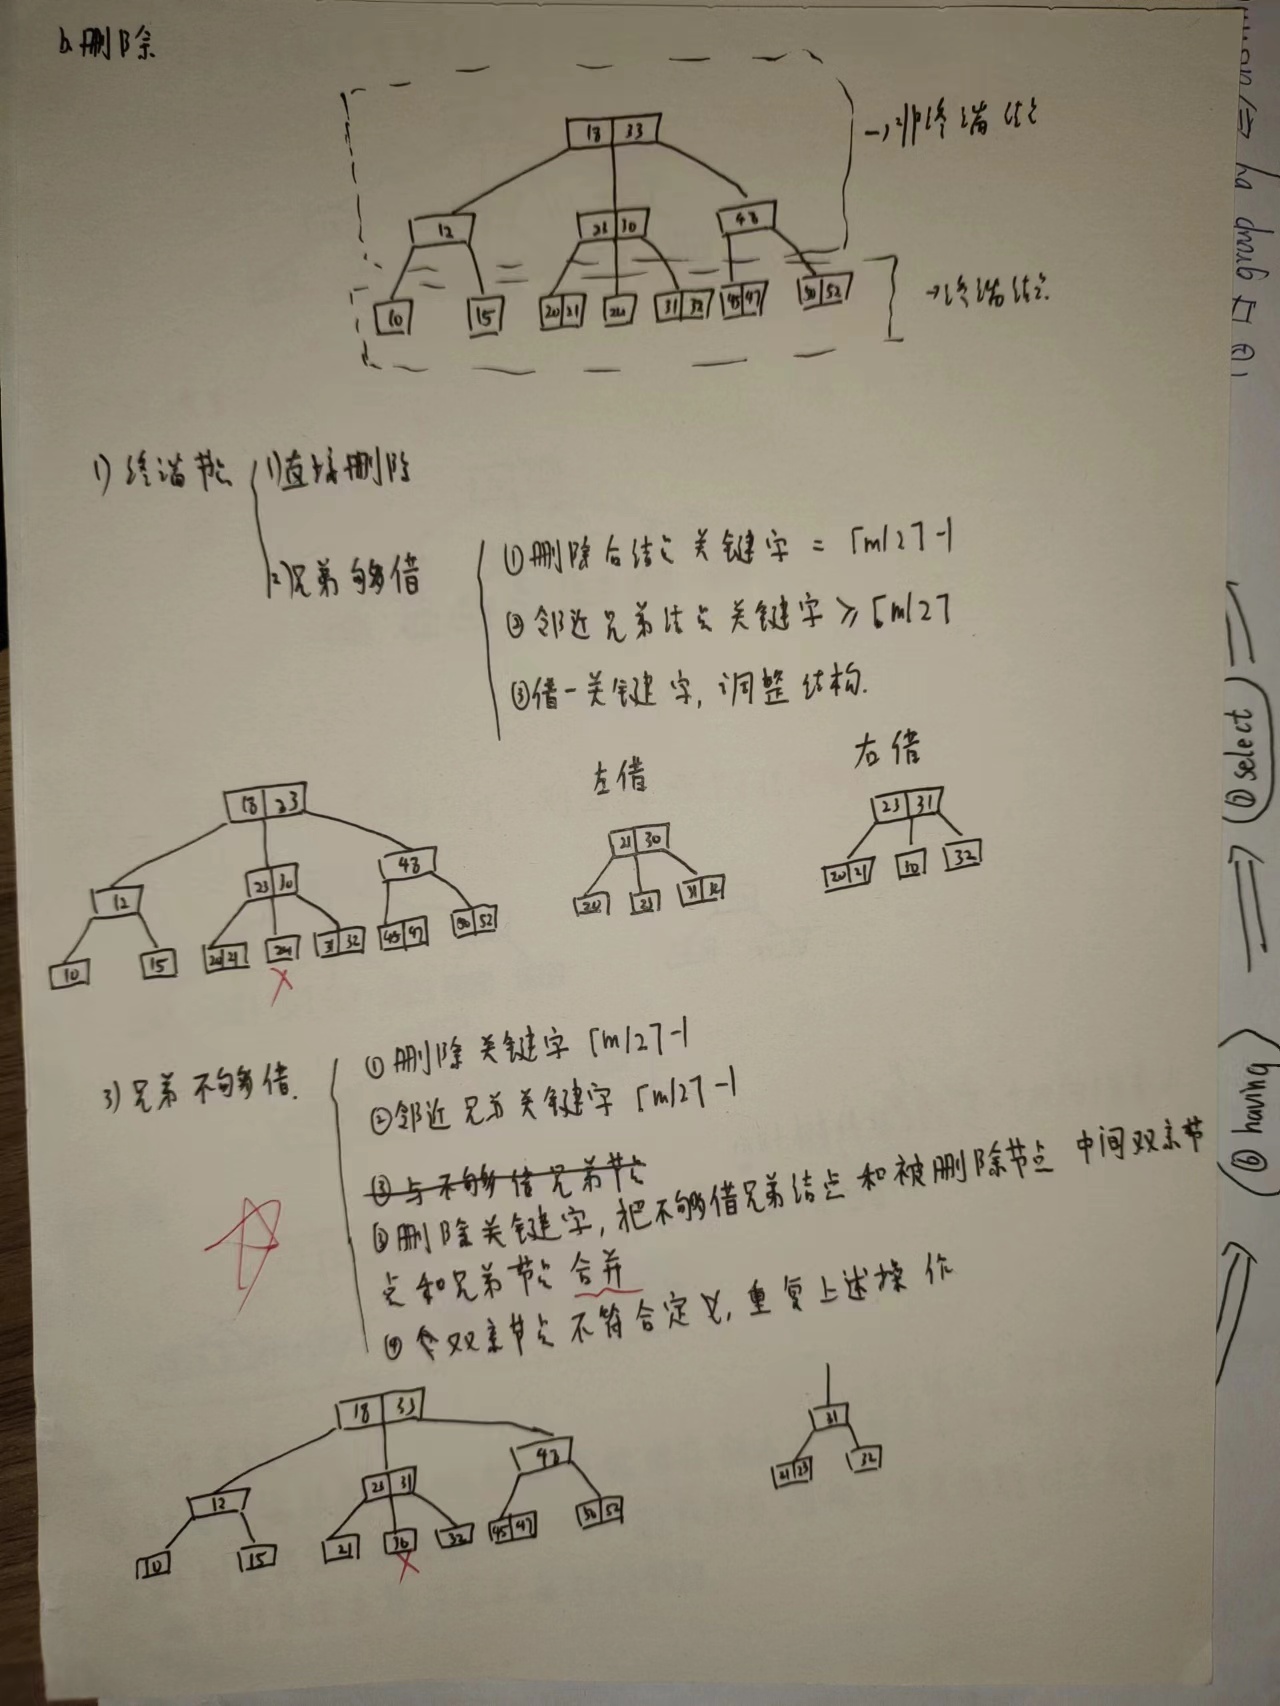 b. 删除
18 33
→非终端结点
12 23 30 48
10 15 20 21 24 31 32 45 47 50 52
→终端结点.
1) 终端节点 1) 直接删除
2) 兄弟够借
① 删除后结点关键字 = ⌈m/2⌉-1
② 邻近兄弟结点关键字 ≥ ⌈m/2⌉
③ 借一关键字, 调整结构.
左借 右借
18 23
12 23 30 48
10 15 20 21 24 31 32 45 47 50 52
X
21 30
20 23 31 32
23 31
20 21 30 32
3) 兄弟不够借.
① 删除关键字 ⌈m/2⌉-1
② 邻近兄弟关键字 ⌈m/2⌉-1
③ 与不够借兄弟节点
③ 删除关键字, 把不够借兄弟结点和被删除节点中间双亲节
点和兄弟节点合并
④ 双亲节点不符合定义, 重复上述操作
18 33
12 23 31 48
10 15 21 30 32 45 47 50 52
X
31
21 23 32
② select
① having
group by